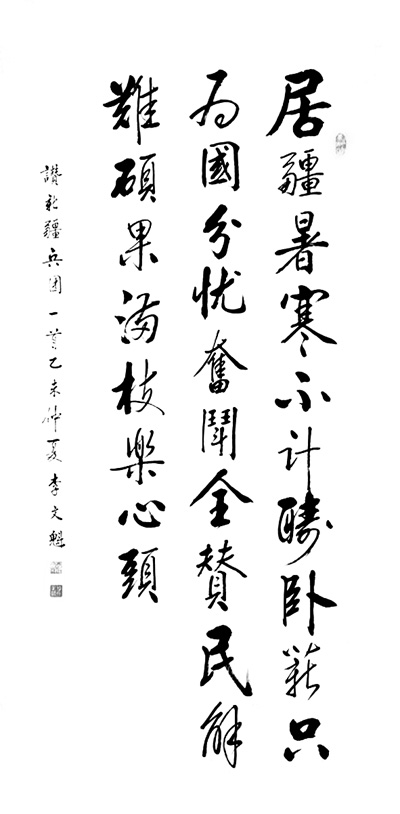 居疆暑寒不計疇卧薪只
为國分忧奮鬪全賛民解
難碩果滿枝樂心頭
讚新疆兵团一首乙未仲夏李文魁